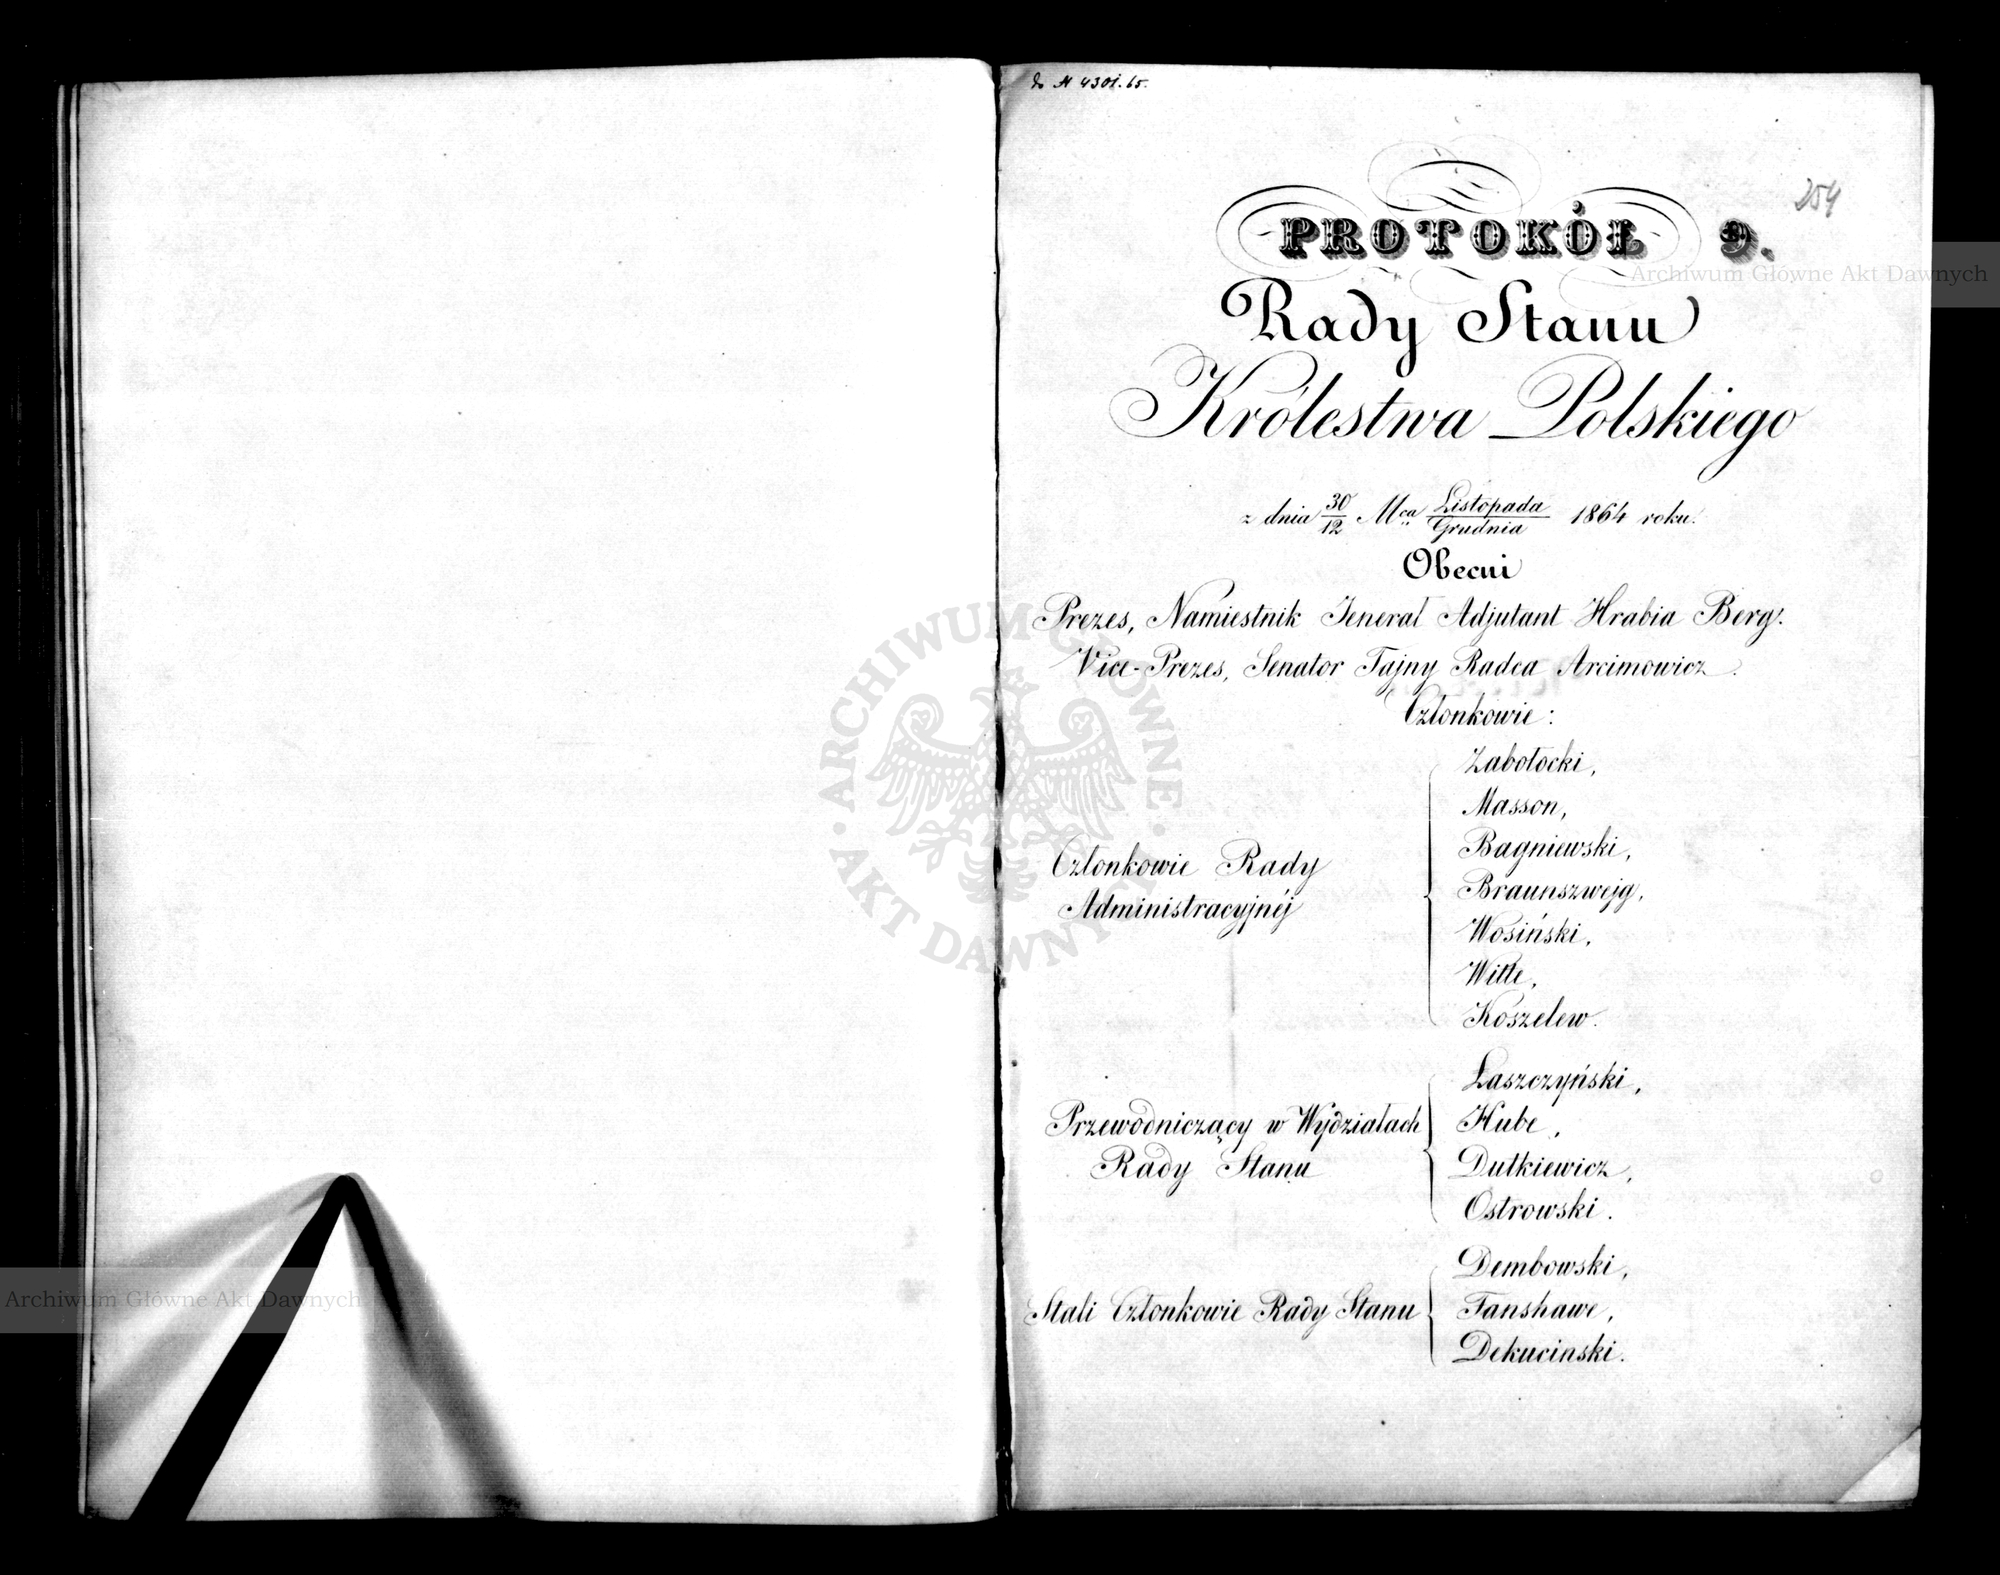 do N 4301.65.
254
PROTOKÓŁ 9.
Rady Stanu
Królestwa Polskiego
z dnia 30/12 Mca Listopada/Grudnia 1864 roku.
Obecni
Prezes, Namiestnik Jenerał Adjutant Hrabia Berg.
Vice-Prezes, Senator Tajny Radca Arcimowicz.
Członkowie:
Członkowie Rady
Administracyjnéj
Zabołocki,
Masson,
Bagniewski,
Braunszwejg,
Wosiński,
Witte,
Koszelew.
Przewodniczący w Wydziałach
Rady Stanu
Łaszczyński,
Hube,
Dutkiewicz,
Ostrowski.
Stali Członkowie Rady Stanu
Dembowski,
Fanshawe,
Dekucinski.
Archiwum Główne Akt Dawnych
ARCHIWUM GŁÓWNE
AKT DAWNYCH
Archiwum Główne Akt Dawnych